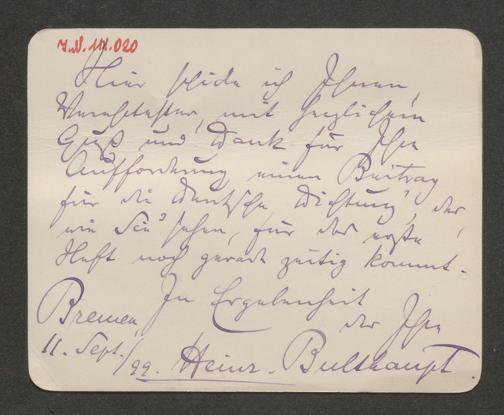 J.N. 141.020
Hier schicke ich Ihnen,
Verehrtester, mit herzlichem
Gruß und Dank für Ihre
Aufforderung einen Beitrag
für die „Deutsche Dichtung“, der,
wie Sie sehen, für das erste
Heft noch gerade zeitig kommt.
In Ergebenheit
der Ihre
Bremen,
11. Sept./99. Heinr. Bulthaupt.